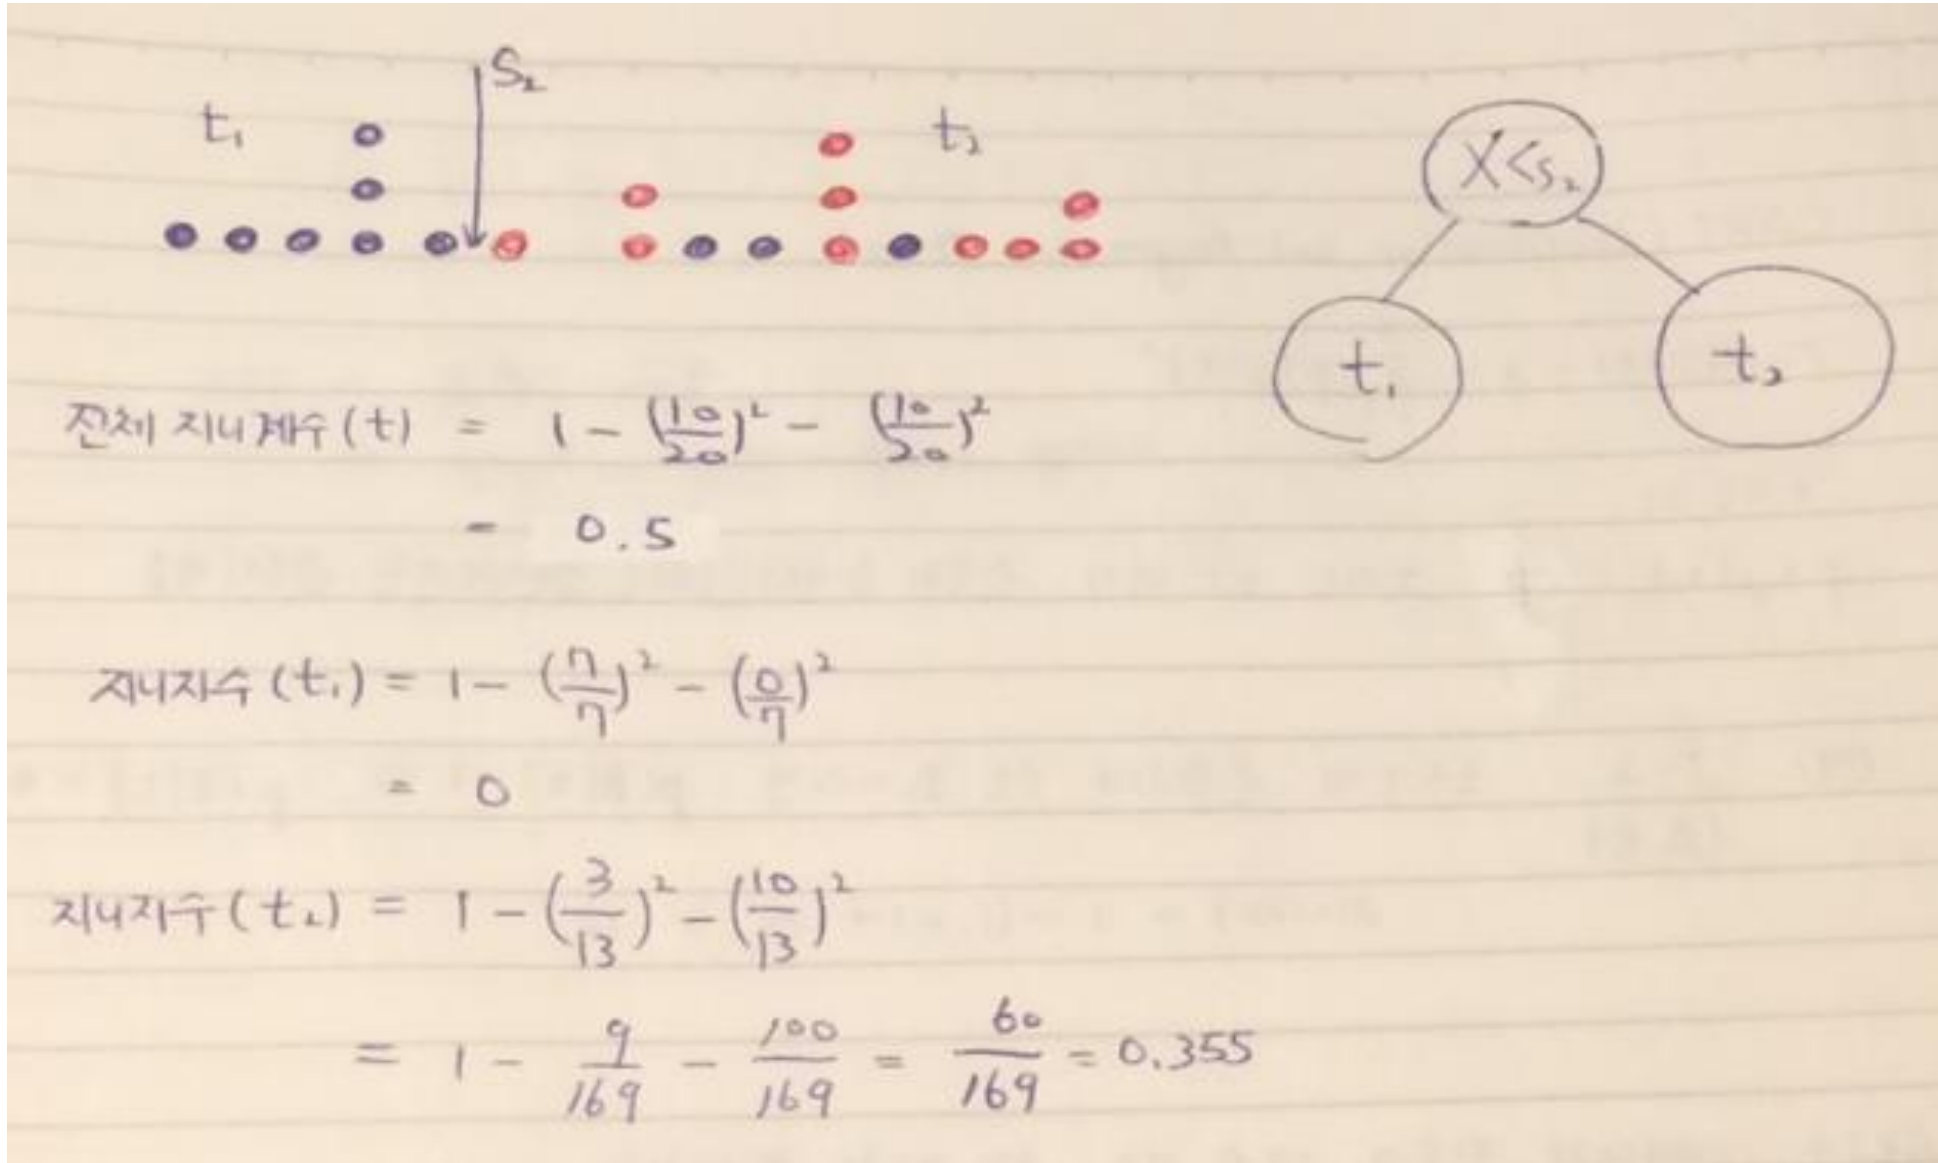 S₂
t₁ t₂
X<s₂
t₁ t₂
전체 지니계수(t) = 1 - (10/20)² - (10/20)²
= 0.5
지니지수(t₁) = 1 - (7/7)² - (0/7)²
= 0
지니지수(t₂) = 1 - (3/13)² - (10/13)²
= 1 - 9/169 - 100/169 = 60/169 = 0.355